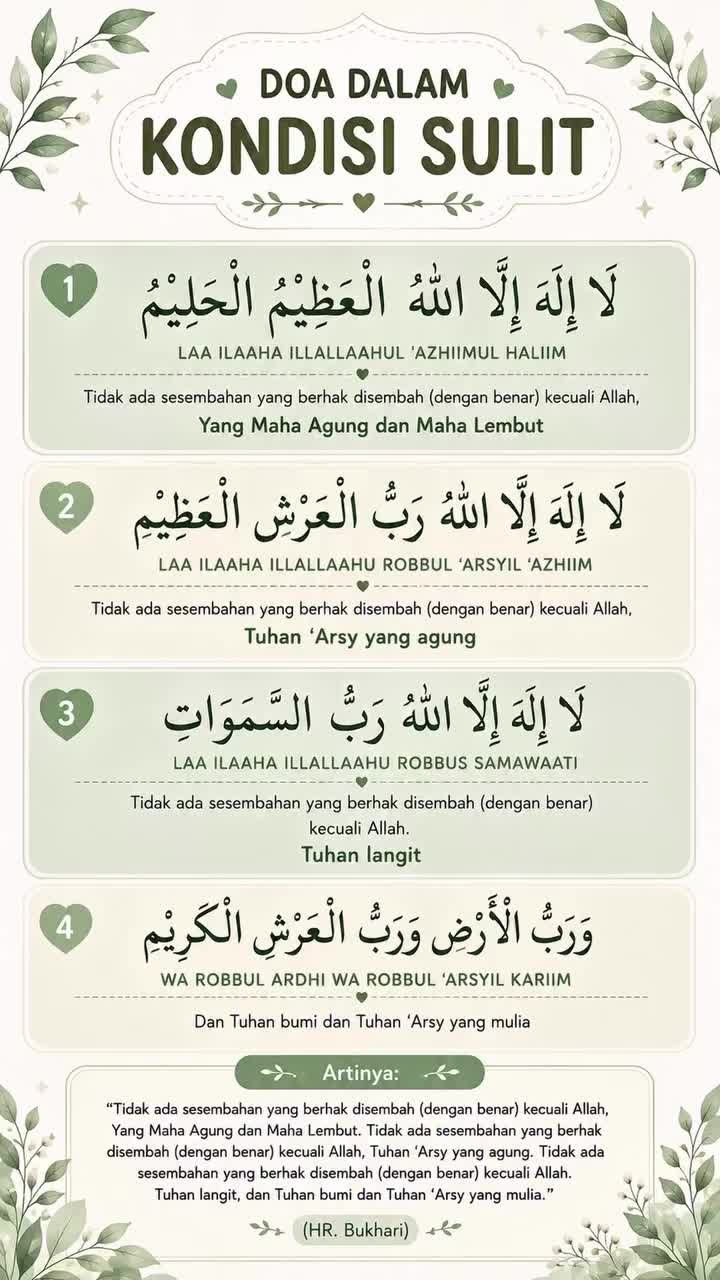 DOA DALAM
KONDISI SULIT
1
لَا إِلَهَ إِلَّا اللهُ الْعَظِيْمُ الْحَلِيْمُ
LAA ILAAHA ILLALLAAHUL 'AZHIIMUL HALIIM
Tidak ada sesembahan yang berhak disembah (dengan benar) kecuali Allah,
Yang Maha Agung dan Maha Lembut
2
لَا إِلَهَ إِلَّا اللهُ رَبُّ الْعَرْشِ الْعَظِيْمِ
LAA ILAAHA ILLALLAAHU ROBBUL ‘ARSYIL ‘AZHIIM
Tidak ada sesembahan yang berhak disembah (dengan benar) kecuali Allah,
Tuhan ‘Arsy yang agung
3
لَا إِلَهَ إِلَّا اللهُ رَبُّ السَّمَوَاتِ
LAA ILAAHA ILLALLAAHU ROBBUS SAMAWAATI
Tidak ada sesembahan yang berhak disembah (dengan benar)
kecuali Allah.
Tuhan langit
4
وَرَبُّ الْأَرْضِ وَرَبُّ الْعَرْشِ الْكَرِيْمِ
WA ROBBUL ARDHI WA ROBBUL ‘ARSYIL KARIIM
Dan Tuhan bumi dan Tuhan ‘Arsy yang mulia
Artinya:
“Tidak ada sesembahan yang berhak disembah (dengan benar) kecuali Allah,
Yang Maha Agung dan Maha Lembut. Tidak ada sesembahan yang berhak
disembah (dengan benar) kecuali Allah, Tuhan ‘Arsy yang agung. Tidak ada
sesembahan yang berhak disembah (dengan benar) kecuali Allah.
Tuhan langit, dan Tuhan bumi dan Tuhan ‘Arsy yang mulia.”
(HR. Bukhari)